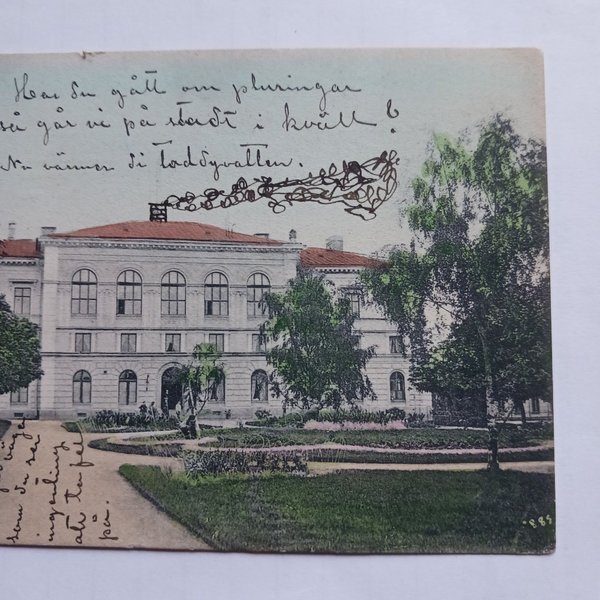 Har du gått om pluringar
så går vi på stadt i kväll!
Nu värmer di toddyvatten.
som du ser
ingenting
att ta fel
på.
889.